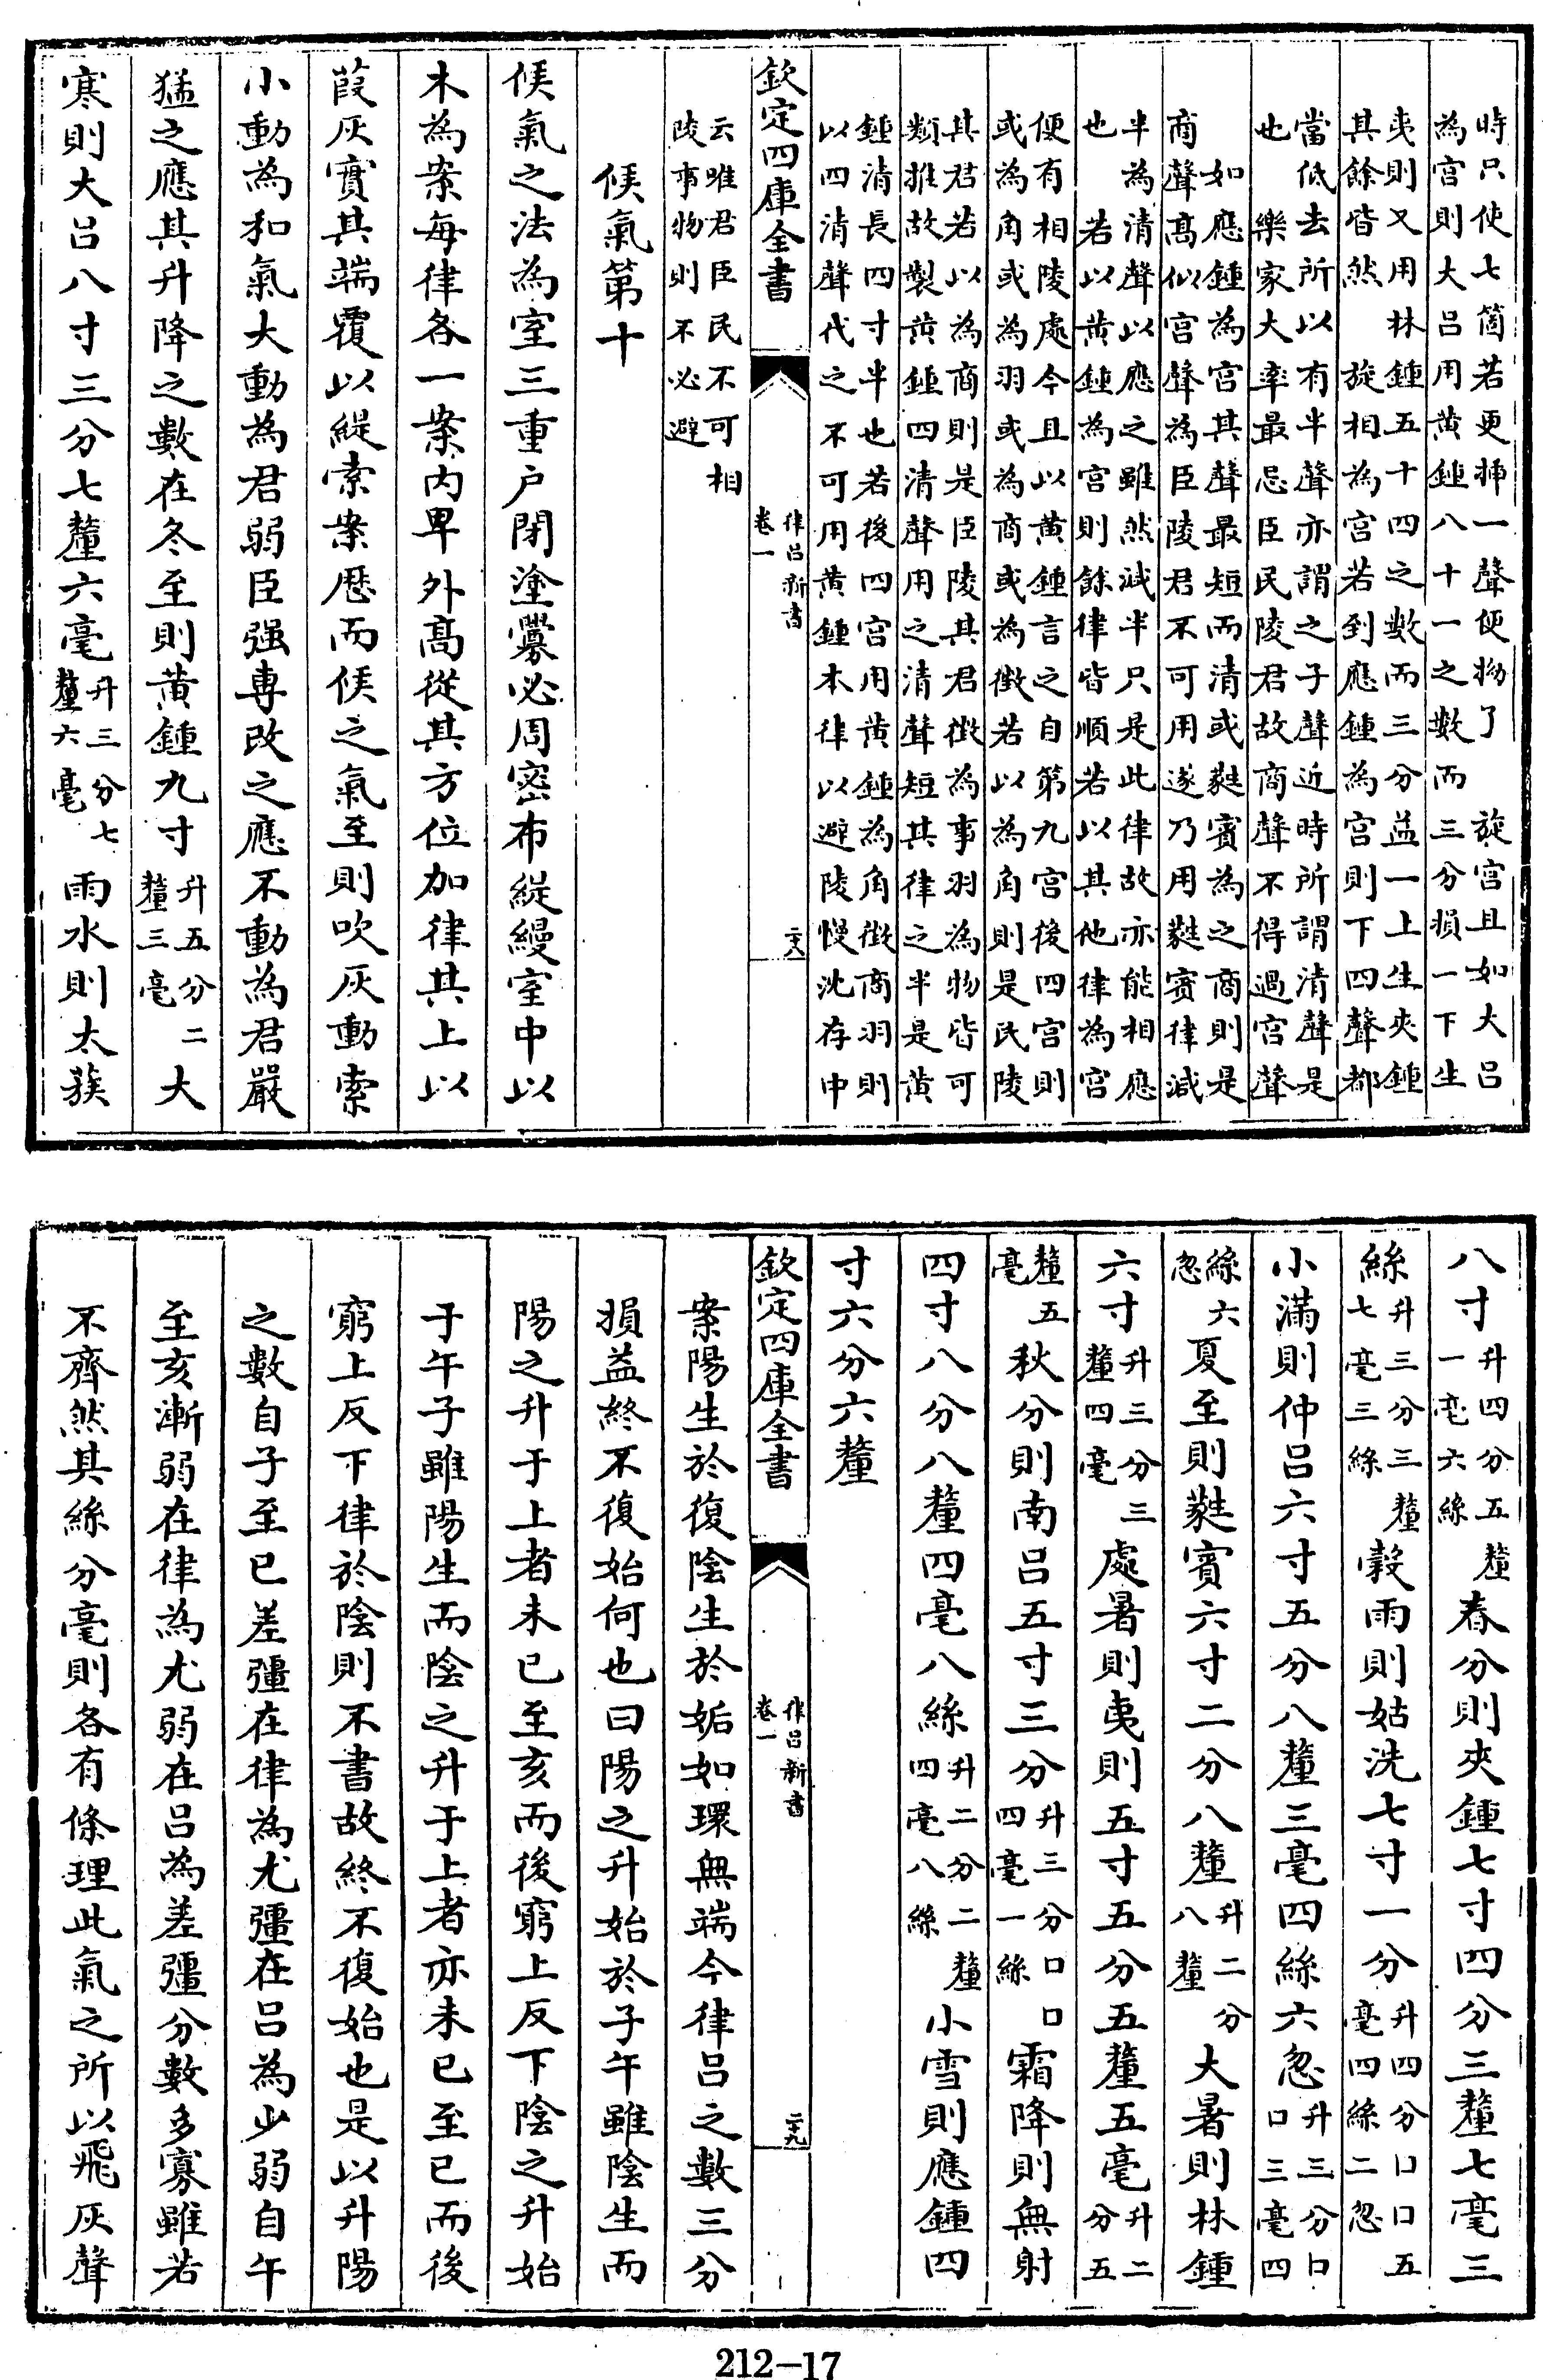 時只使七箇若更揷一聲便拗了　旋宫且如大吕
為宫則大吕用黄鍾八十一之數而三分損一下生
夷則又用林鍾五十四之數而三分益一上生夾鍾
其餘皆然　旋相為宫若到應鍾為宫則下四聲都
當低去所以有半聲亦謂之子聲近時所謂清聲是
也　樂家大率最忌臣民陵君故商聲不得過宫聲
如應鍾為宫其聲最短而清或蕤賓為之商則是
商聲髙似宫聲為臣陵君不可用遂乃用蕤賓律減
半為清聲以應之雖然減半只是此律故亦能相應
也　若以黄鍾為宫則餘律皆順若以其他律為宫
便有相陵處今且以黄鍾言之自第九宫後四宫則
或為角或為羽或為商或為徵若以為角則是民陵
其君若以為商則是臣陵其君徵為事羽為物皆可
類推故製黄鍾四清聲用之清聲短其律之半是黄
鍾清長四寸半也若後四宫用黄鍾為角徵商羽則
以四清聲代之不可用黄鍾本律以避陵慢沈存中
欽定四庫全書　律吕新書　卷一　二十八
云唯君臣民不可相
陵事物則不必避
候氣第十
候氣之法為室三重户閉塗釁必周密布緹縵室中以
木為案每律各一案内卑外髙從其方位加律其上以
葭灰實其端覆以緹素案厯而候之氣至則吹灰動素
小動為和氣大動為君弱臣强專政之應不動為君嚴
猛之應其升降之數在冬至則黄鍾九寸升五分二釐三毫大
寒則大吕八寸三分七釐六毫升三分七釐六毫雨水則太蔟
八寸升四分五釐一毫六絲春分則夾鍾七寸四分三釐七毫三
絲升三分三釐七毫三絲穀雨則姑洗七寸一分升四分口口五毫四絲二忽
小滿則仲吕六寸五分八釐三毫四絲六忽升三分口口三毫四
絲六忽夏至則蕤賓六寸二分八釐升二分八釐大暑則林鍾
六寸升三分三釐四毫處暑則夷則五寸五分五釐五毫升二分五
釐五毫秋分則南吕五寸三分升三分口口四毫一絲霜降則無射
四寸八分八釐四毫八絲升二分二釐四毫八絲小雪則應鍾四
寸六分六釐
欽定四庫全書　律吕新書　卷一　二十九
案陽生於復陰生於姤如環無端今律吕之數三分
損益終不復始何也曰陽之升始於子午雖陰生而
陽之升于上者未已至亥而後窮上反下陰之升始
于午子雖陽生而陰之升于上者亦未已至巳而後
窮上反下律於陰則不書故終不復始也是以升陽
之數自子至巳差彊在律為尤彊在吕為少弱自午
至亥漸弱在律為尤弱在吕為差彊分數多寡雖若
不齊然其絲分毫則各有條理此氣之所以飛灰聲
212-17